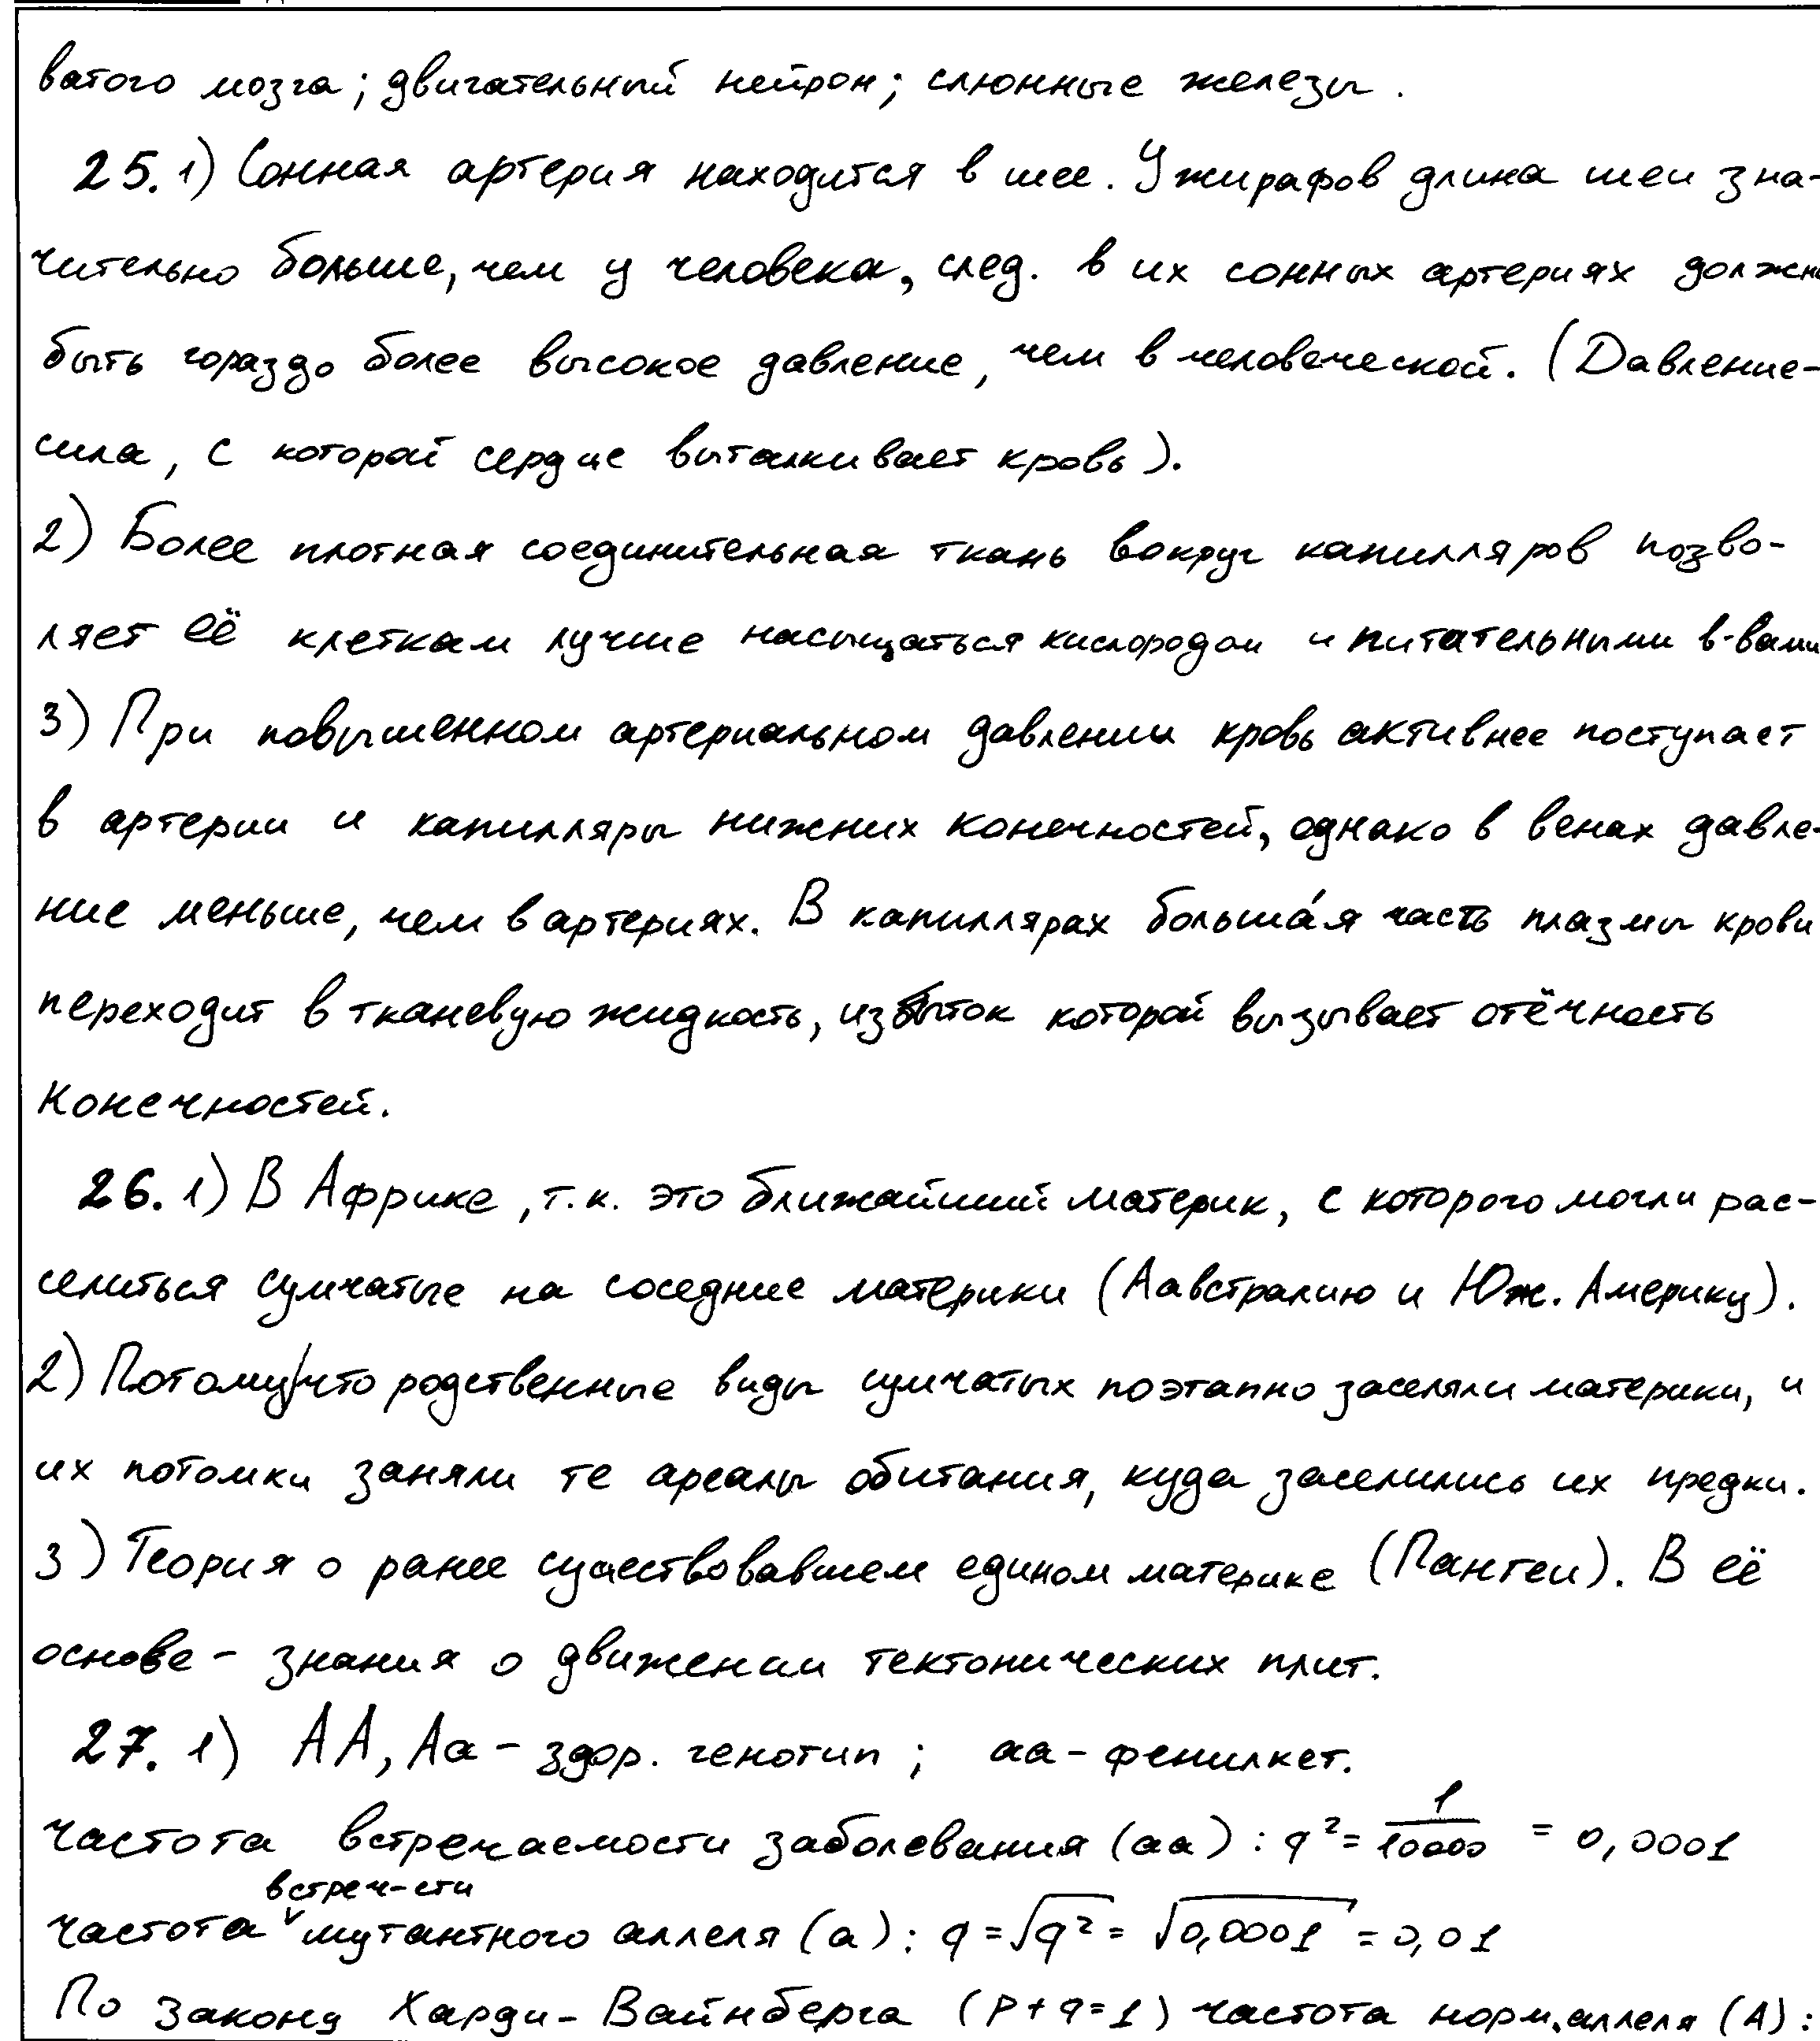 ватого мозга; двигательный нейрон; слюнные железы.
25. 1) Сонная артерия находится в шее. У жирафов длина шеи зна-
чительно больше, чем у человека, след. в их сонных артериях должно
быть гораздо более высокое давление, чем в человеческой. (Давление-
сила, с которой сердце выталкивает кровь).
2) Более плотная соединительная ткань вокруг капилляров позво-
ляет её клеткам лучше насыщаться кислородом и питательными в-вами
3) При повышенном артериальном давлении кровь активнее поступает
в артерии и капилляры нижних конечностей, однако в венах давле-
ние меньше, чем в артериях. В капиллярах больша́я часть плазмы крови
переходит в тканевую жидкость, избыток которой вызывает отёчность
конечностей.
26. 1) В Африке, т.к. это ближайший материк, с которого могли рас-
селиться сумчатые на соседние материки (Аавстралию и Юж. Америку).
2) Потому/что родственные виды сумчатых поэтапно заселяли материки, и
их потомки заняли те ареалы обитания, куда заселились их предки.
3) Теория о ранее существовавшем едином материке (Пангеи). В её
основе - знания о движении тектонических плит.
27. 1) АА, Аа - здор. генотип; аа - фенилкет.
частота встречаемости заболевания (аа): q² = 1/10000 = 0,0001
частота встреч-сти мутантного аллеля (а): q = √q² = √0,0001 = 0,01
По закону Харди-Вайнберга (p + q = 1) частота норм. аллеля (А):